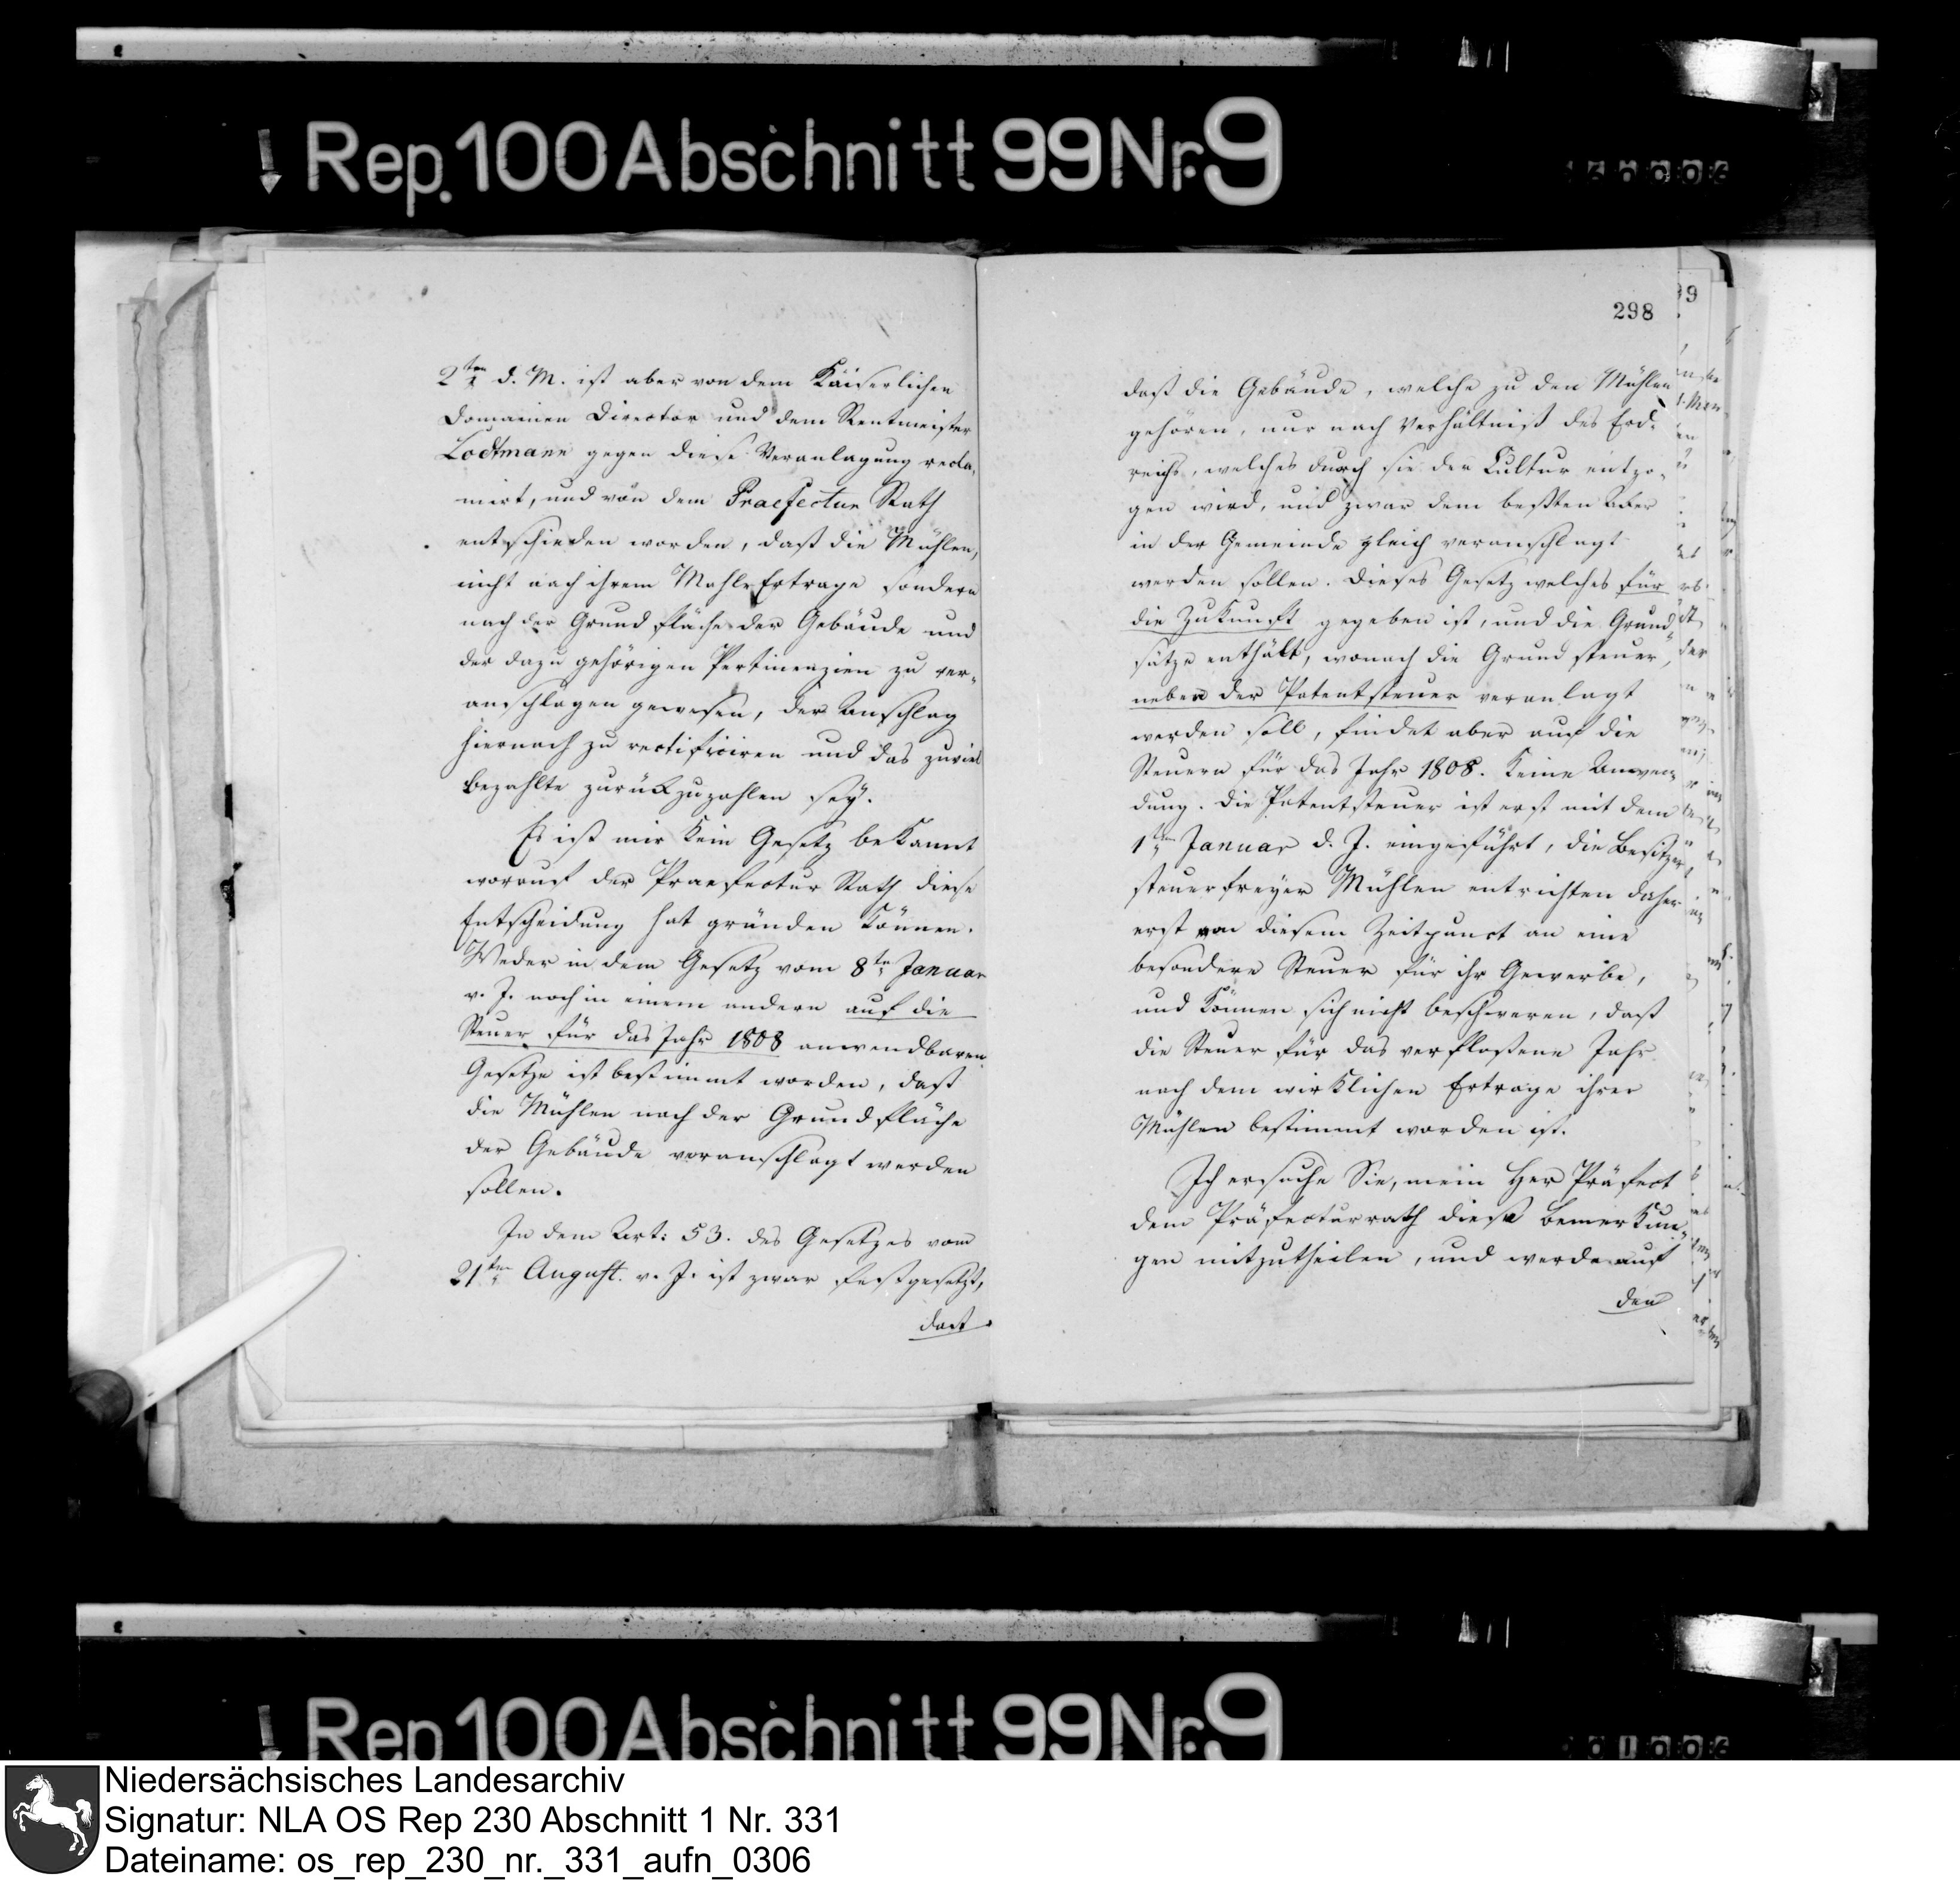 Rep. 100 Abschnitt 99 Nr. 9
2ten d. M. ist aber von dem Kaiserlichen
Domainen Director und dem Rentmeister
Lodtmann gegen diese Veranlagung recla,
mirt, und von dem Praefectur Rath
entschieden worden, daß die Mühlen,
nicht nach ihrem Mahl Ertrage sondern
nach der Grundfläche der Gebäude und
der dazu gehörigen Pertinenzien zu ver„
anschlagen gewesen, der Anschlag
hiernach zu rectificiren und das zuviel
bezahlte zurückzuzahlen sey.
Es ist mir kein Gesetz bekannt
worauf der Praefectur Rath diese
Entscheidung hat gründen können.
Weder in dem Gesetz vom 8ten Januar
v. J. noch in einem andern auf die
Steuer für das Jahr 1808 anwendbaren
Gesetze ist bestimmt worden, daß
die Mühlen nach der Grundfläche
der Gebäude veranschlagt werden
sollen.
In dem Art: 53. des Gesetzes vom
21ten August v. J. ist zwar festgesetzt,
daß
298
daß die Gebäude, welche zu den Mühlen
gehören, nur nach Verhältniß des Erd„
reichs, welches durch sie der Cultur entzo„
gen wird, und zwar dem beßten Acker
in der Gemeinde gleich veranschlagt
werden sollen. Dieses Gesetz welches für
die Zukunft gegeben ist, und die Grund„
sätze enthält, wonach die Grundsteuer,
neben der Patentsteuer veranlagt
werden soll, findet aber auf die
Steuern für das Jahr 1808. keine Anwen„
dung. Die Patentsteuer ist erst mit dem
1ten Januar d. J. eingeführt, die Besitzer
steuerfreyer Mühlen entrichten daher
erst von diesem Zeitpunct an eine
besondere Steuer für ihr Gewerbe,
und können sich nicht beschweren, daß
die Steuer für das verfloßene Jahr
nach dem wirklichen Ertrage ihrer
Mühlen bestimmt worden ist.
Ich ersuche Sie, mein Her Präfect
dem Präfecturrath diese Bemerkun„
gen mitzutheilen, und werde auf
den
Rep. 100 Abschnitt 99 Nr. 9
Niedersächsisches Landesarchiv
Signatur: NLA OS Rep 230 Abschnitt 1 Nr. 331
Dateiname: os_rep_230_nr._331_aufn_0306